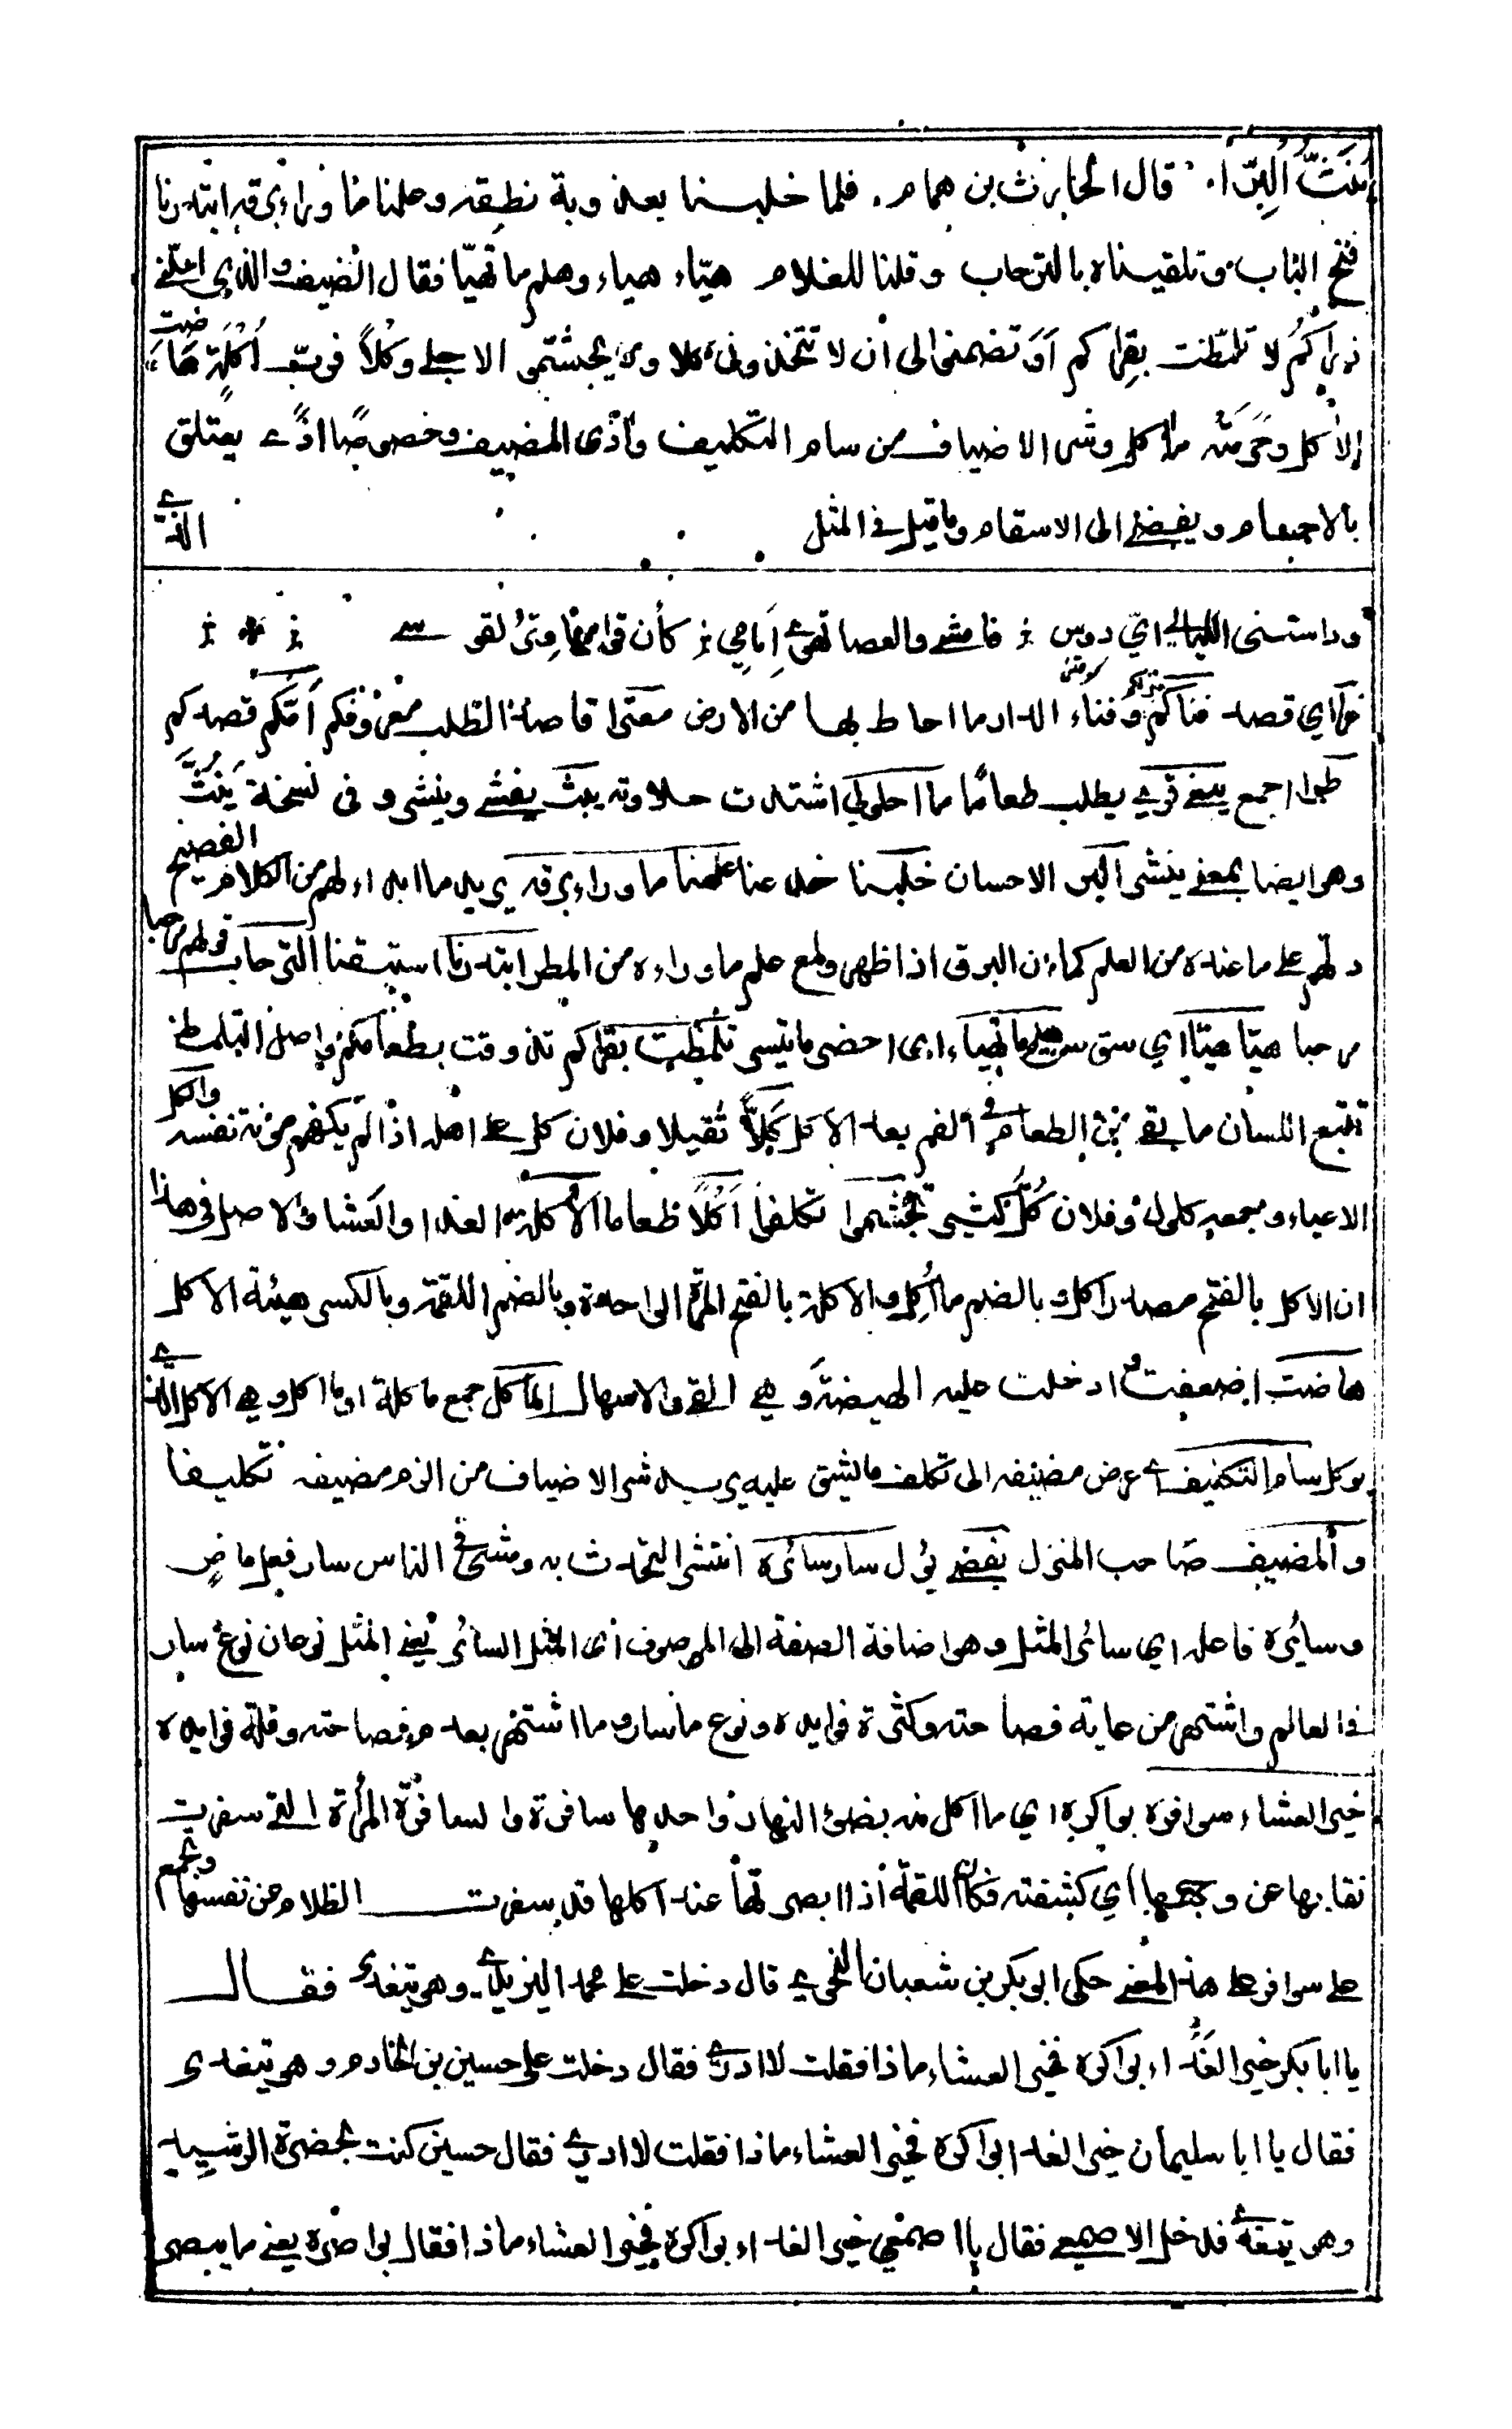 يَنُثُّ البِرَّا. قال الحارث بن همام. فلما خلبنا بعذوبة نطقه وعلمنا ما وراء برقه ابتدرنا
فتح الباب وتلقيناه بالترحاب وقلنا للغلام هيّاء هياء وهلم ما تهيّا فقال الضيف والذي احلني
ذراكم لا تلمّظت بقراكم اَو تضمنوا لى ان لا تتخذونى كلا ولا تجشّموا لاجلي اُكلاً فربّ اُكلة هاضت
الاٰكل وحَرَمَته ماٰكل وشر الاضياف من سام التكليف واٰذى المضيف وخصوصًا اذًى يعتلق
بالاجسام ويفضي الى الاسقام وما قيل في المثل الذي
وداستنى الليالي ايّ دوس فامشي والعصا تهوي اَمامي كأن قوامها وتر لقوسي
عرا اي قصد فناكم وفناء الدار ما احاط بها من الارض معترا قاصدا لطلب معروفكم اَمَّكم قصدكم
طرا جمع يبغي قرى يطلب طعامًا ما احلولي اشتدت حلاوته يبث يفشي وينشر و فى نسخة يَنُثُّ
وهو ايضا بمعنى ينشر البر الاحسان خلبنا خدعنا علمنا ما وراء برقه يريد ما ابداه لهم من الكلام الفصيح
دلّهم على ما عنده من العلم كما ان البرق اذا ظهر ولمع علم ما وراءه من المطر ابتدرنا استبقنا الترحاب قولهم مرحبا
مرحبا هيّا هيّا اي سق سريعا هلم ما تهياء اى احضر ما تيسر تلمظت بقراكم تذوقت بطعامكم واصل التلمظ
تتبع اللسان ما بقى من الطعام في الفم بعد الاكل كَلاًّ ثقيلا وفلان كل على اهله اذا لم يكفهم مؤنة نفسه والكل
الاعياء وجمعه كلول وفلان كَلّ كثير تجشموا تكلفوا اُكُلاً طعاما الاُكلة الغدا والعشا والاصل فى هذا
ان الاكل بالفتح مصدر اكل وبالضم ما اُكِل والاكلة بالفتح المرة الواحدة وبالضم اللقمة وبالكسر هيئة الاكل
هاضت اضعفت وادخلت عليه الهيضة وهي القي والاسهال الماٰكل جمع ماكلة او ما اكل وهي الاكل الذي
يوكل سام التكليف عرض مضيفه الى تكلف ما يشق عليه يريد شر الاضياف من الزم مضيفه تكليفا
والمضيف صاحب المنزل يفضي يؤل سار سائره انتشر التحدث به ومشى في الناس سار فعل ماضٍ
وسايره فاعله اي سائر المثل وهو اضافة الصفة الى الموصوف اى المثل السائر يعني المثل نوعان نوع سار
في العالم واشتهر من غاية فصاحته وكثرة فوايده ونوع ما سار وما اشتهر بعدم فصاحته وقلة فوايده
خير العشاء سوافره بواكره اي ما اكل منه بضوء النهار واحدها سافرة والسافرة المرأة التي سفرت
نقابها عن وجهها اي كشفته فكان اللقمة اذا ابصرتها عند اكلها قد سفرت الظلام عن نفسها وتجمع
على سوافر على هذا المعنى حكى ابو بكر بن شعبان النحوي قال دخلت على محمد اليزيدي وهو يتغدى فقال
يا ابا بكر خير الغداء بواكره فخير العشاء ماذا فقلت لا ادري فقال دخلت على حسين بن الخادم وهو يتغدى
فقال يا ابا سليمان خير الغدا بواكره فخير العشاء ماذا فقلت لا ادري فقال حسين كنت بحضرة الرشيد
وهو يتغدى فدخل الاصمعي فقال يا اصمعي خير الغداء بواكره فخير العشاء ماذا فقال بواصره يعنى ما يبصر